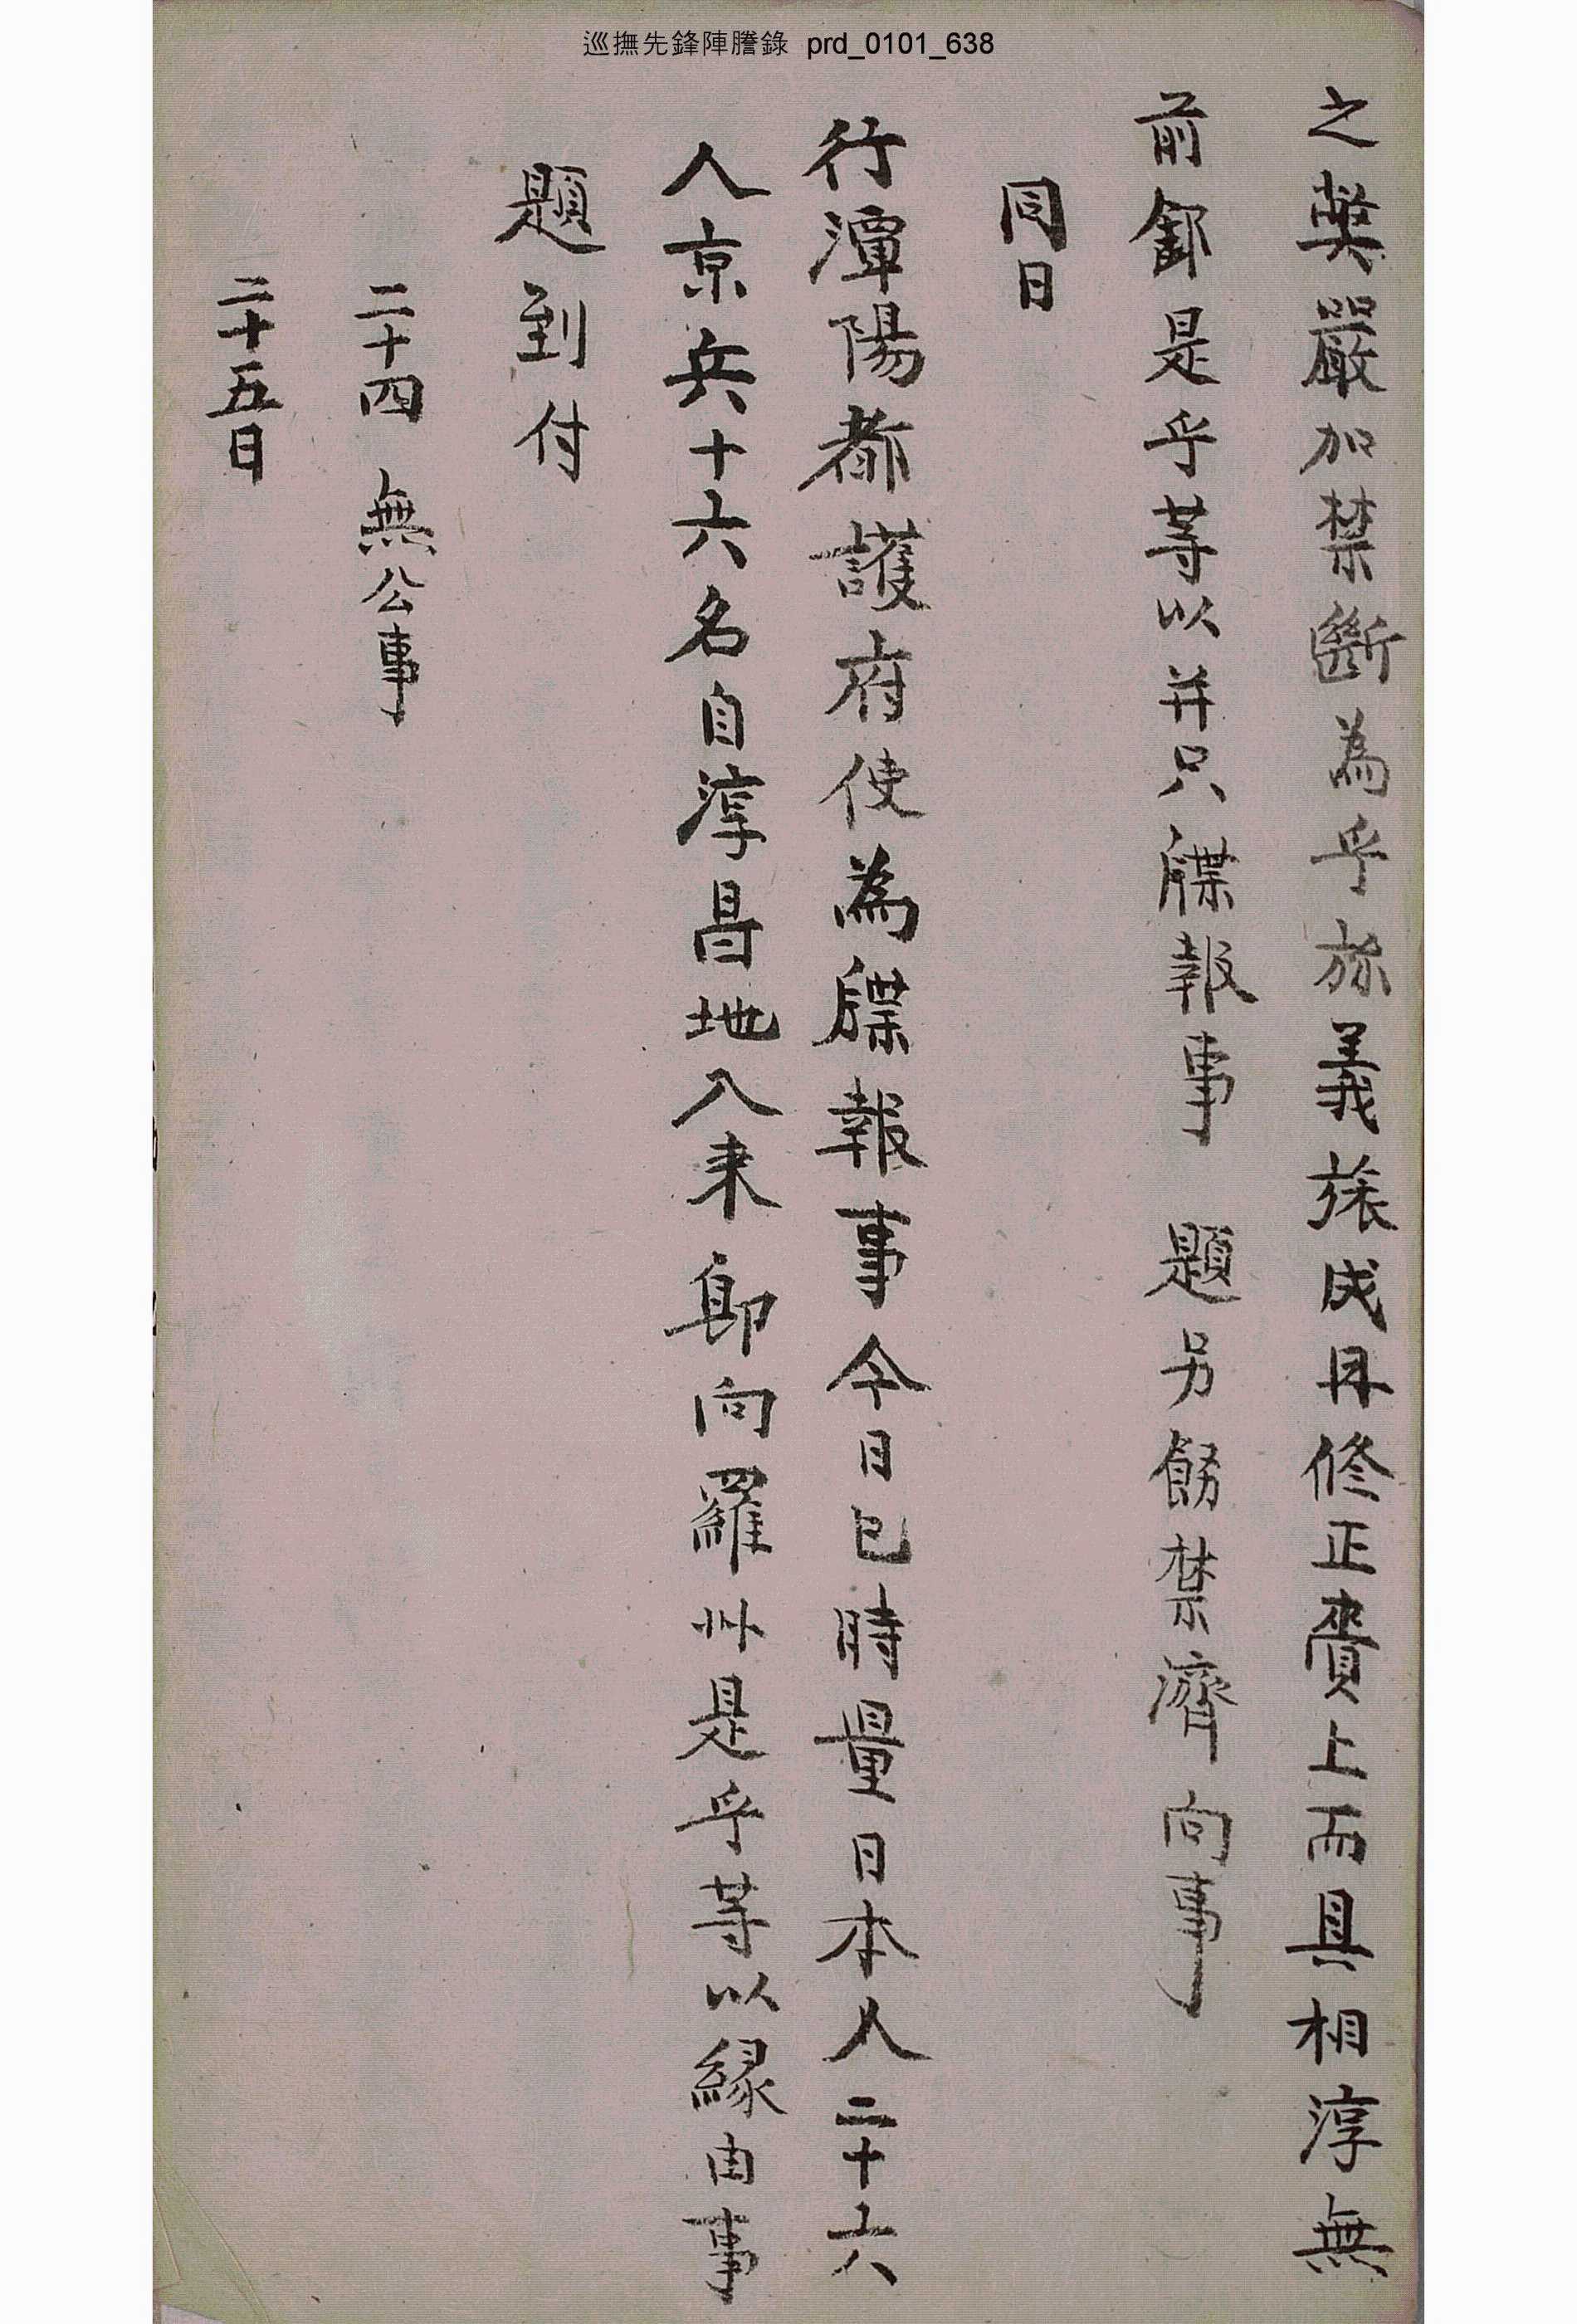 巡撫先鋒陣謄錄 prd_0101_638
之獘嚴加禁斷為乎旀義旅成冊修正賫上而具相淳無
前鄧是乎等以并只牒報事 題另飭禁濟向事
同日
行潭陽都護府使為牒報事今日巳時量日本人二十六
人京兵十六名自淳昌地入来即向羅州是乎等以緣由事
題到付
二十四 無公事
二十五日